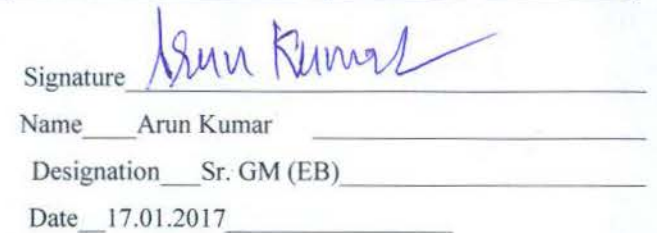 Signature Arun Kumar
Name Arun Kumar
Designation Sr. GM (EB)
Date 17.01.2017